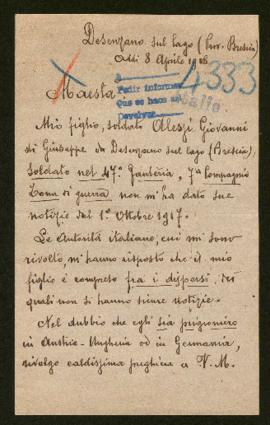 Desenzano sul lago (Prov. Brescia)
Addì 8 Aprile 1918
4333
Pedir informes
Que se hace
Devolver
Italie.
Maestà
Mio figlio, soldato Alessi Giovanni
di Giuseppe da Desenzano sul lago (Brescia),
soldato nel 47º Fanteria, 7a Compagnia
Zona di guerra non m'ha dato sue
notizie dal 1º Ottobre 1917.
Le Autorità italiane, cui mi sono
rivolto, m'hanno risposto che il mio
figlio è compreso fra i dispersi, dei
quali non si hanno sicure notizie.
Nel dubbio che egli sia prigioniero
in Austria-Ungheria od in Germania,
rivolgo caldissima preghiera a V. M.